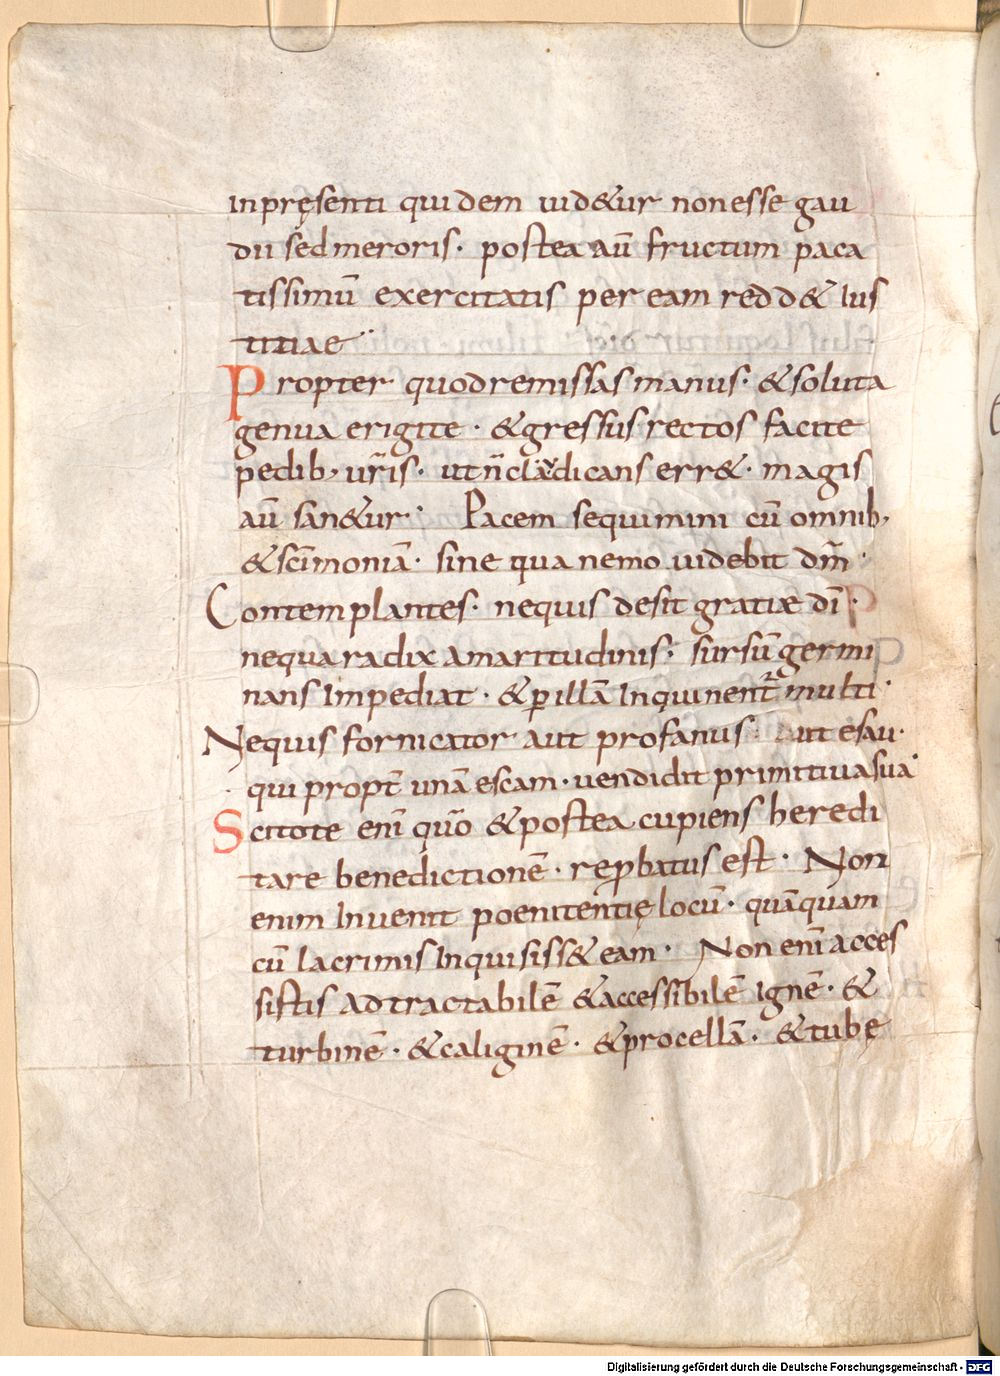 inpręsenti quidem uid&ur nonesse gau
dii sed meroris· postea aū fructum paca
tissimū exercitatis per eam redd& ius
titiae
Propter quod remissas manus· & soluta
genua erigite· & gressus rectos facite
pedib; ur̄is· ut n̄ claudicans err&· magis
aū san&ur· Pacem sequimini cū omnib;
& sc̄imoniā· sine qua nemo uidebit dm̄·
Contemplantes· nequis desit gratiæ dī·
nequa radix amaritudinis· sursū germi
nans impediat· & ꝑ illā inquinent᷑ multi·
Nequis fornicator aut profanus· ut esau·
qui propt̄ unā escam· uendidit primitiua sua·
Scitote enī quō & postea cupiens heredi
tare benedictionē· reꝓbatus est· Non
enim inuenit poenitentię locū· quāquam
cū lacrimis inquisiss& eam· Non enī acces
sistis ad tractabilē & accessibilē ignē· &
turbinē· & caliginē· & procellā· & tubę
Digitalisierung gefördert durch die Deutsche Forschungsgemeinschaft - DFG